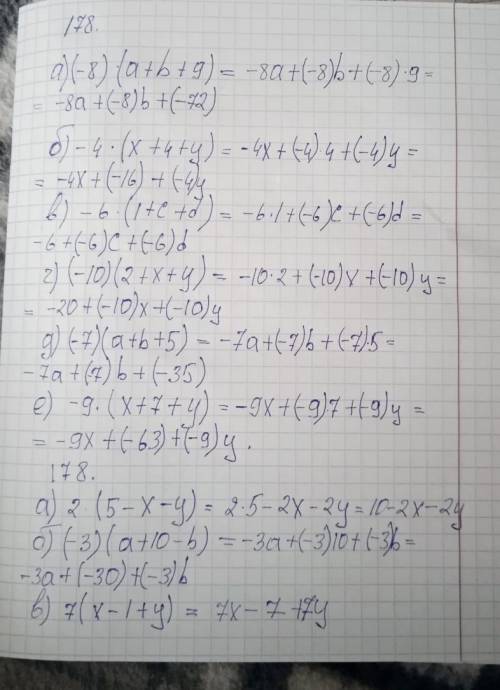 178.
а) (-8) · (a+b+9) = -8a+(-8)b+(-8)·9=
= -8a+(-8)b+(-72)
б) -4 · (x+4+y) = -4x+(-4)·4+(-4)y=
= -4x+(-16)+(-4)y
в) -6 · (1+c+d) = -6·1+(-6)c+(-6)d=
-6+(-6)c+(-6)d
г) (-10)(2+x+y) = -10·2+(-10)x+(-10)y=
= -20+(-10)x+(-10)y
д) (-7)(a+b+5) = -7a+(-7)b+(-7)·5=
-7a+(-7)b+(-35)
е) -9 · (x+7+y) = -9x+(-9)7+(-9)y=
= -9x+(-63)+(-9)y.
178.
а) 2 · (5-x-y) = 2·5-2x-2y=10-2x-2y
б) (-3)(a+10-b) = -3a+(-3)10+(-3)b=
-3a+(-30)+(-3)b
в) 7(x-1+y) = 7x-7+7y